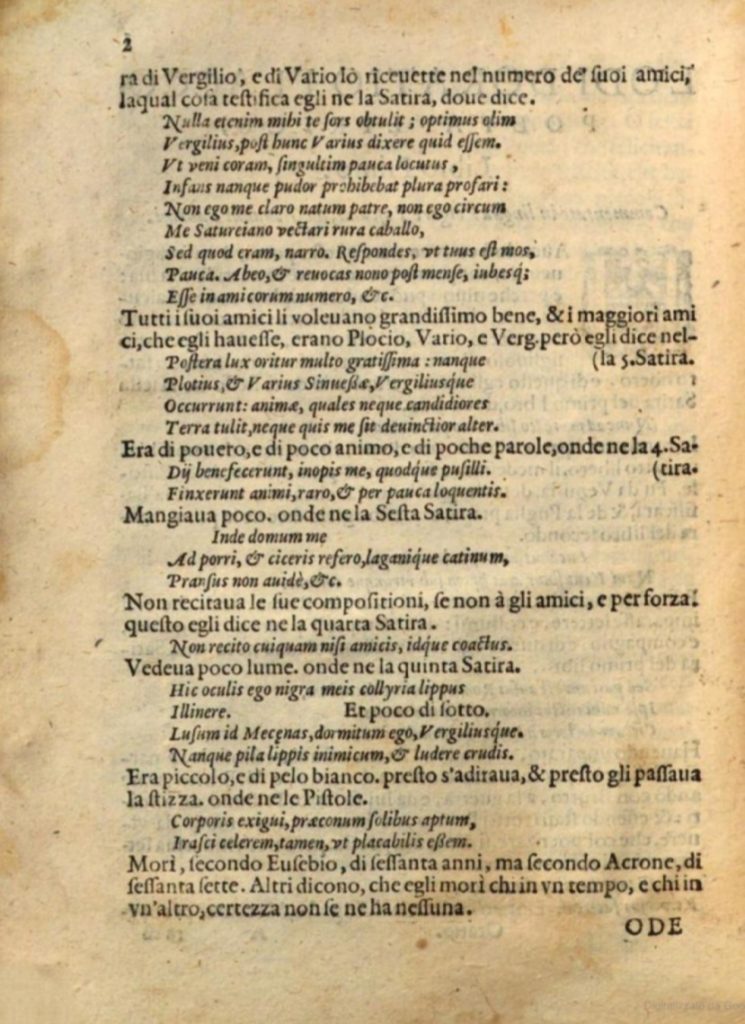 2
ra di Vergilio, e di Vario lo riceuette nel numero de' suoi amici,
laqual cosa testifica egli ne la Satira, doue dice.
Nulla etenim mihi te fors obtulit ; optimus olim
Vergilius, post hunc Varius dixere quid essem.
Vt veni coram, singultim pauca locutus,
Infans nanque pudor prohibebat plura profari:
Non ego me claro natum patre, non ego circum
Me Satureiano vectari rura caballo,
Sed quod eram, narro. Respondes, vt tuus est mos,
Pauca. Abeo, & reuocas nono post mense, iubesq;
Esse in amicorum numero, &c.
Tutti i suoi amici li voleuano grandissimo bene, & i maggiori ami
ci, che egli hauesse, erano Plocio, Vario, e Verg. però egli dice nel-
Postera lux oritur multo gratissima : nanque (la 5. Satira.
Plotius, & Varius Sinuessæ, Vergiliusque
Occurrunt: animæ, quales neque candidiores
Terra tulit, neque quis me sit deuinctior alter.
Era di pouero, e di poco animo, e di poche parole, onde ne la 4. Sa-
Dij benefecerunt, inopis me, quodque pusilli. (tira.
Finxerunt animi, raro, & per pauca loquentis.
Mangiaua poco. onde ne la Sesta Satira.
Inde domum me
Ad porri, & ciceris refero, laganique catinum,
Pransus non auidè, &c.
Non recitaua le sue compositioni, se non à gli amici, e per forza:
questo egli dice ne la quarta Satira.
Non recito cuiquam nisi amicis, idque coactus.
Vedeua poco lume. onde ne la quinta Satira.
Hic oculis ego nigra meis collyria lippus
Illinere. Et poco di sotto.
Lusum id Mecenas, dormitum ego, Vergiliusque.
Nanque pila lippis inimicum, & ludere crudis.
Era piccolo, e di pelo bianco. presto s'adiraua, & presto gli passaua
la stizza. onde ne le Pistole.
Corporis exigui, præconum solibus aptum,
Irasci celerem, tamen, vt placabilis essem.
Morì, secondo Eusebio, di sessanta anni, ma secondo Acrone, di
sessanta sette. Altri dicono, che egli morì chi in vn tempo, e chi in
vn'altro, certezza non se ne ha nessuna.
ODE